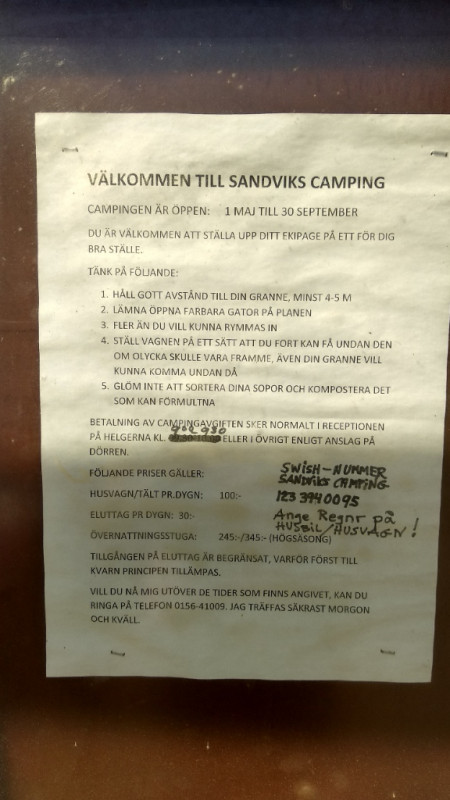 VÄLKOMMEN TILL SANDVIKS CAMPING
CAMPINGEN ÄR ÖPPEN: 1 MAJ TILL 30 SEPTEMBER
DU ÄR VÄLKOMMEN ATT STÄLLA UPP DITT EKIPAGE PÅ ETT FÖR DIG
BRA STÄLLE.
TÄNK PÅ FÖLJANDE:
1. HÅLL GOTT AVSTÅND TILL DIN GRANNE, MINST 4-5 M
2. LÄMNA ÖPPNA FARBARA GATOR PÅ PLANEN
3. FLER ÄN DU VILL KUNNA RYMMAS IN
4. STÄLL VAGNEN PÅ ETT SÄTT ATT DU FORT KAN FÅ UNDAN DEN
OM OLYCKA SKULLE VARA FRAMME, ÄVEN DIN GRANNE VILL
KUNNA KOMMA UNDAN DÅ
5. GLÖM INTE ATT SORTERA DINA SOPOR OCH KOMPOSTERA DET
SOM KAN FÖRMULTNA
BETALNING AV CAMPINGAVGIFTEN SKER NORMALT I RECEPTIONEN
PÅ HELGERNA KL. ELLER I ÖVRIGT ENLIGT ANSLAG PÅ
DÖRREN.
FÖLJANDE PRISER GÄLLER:
HUSVAGN/TÄLT PR.DYGN: 100:-
ELUTTAG PR DYGN: 30:-
ÖVERNATTNINGSSTUGA: 245:-/345:- (HÖGSÄSONG)
SWISH-NUMMER
SANDVIKS CAMPING
123 3940095
Ange Regnr på
HUSBIL/HUSVAGN!
TILLGÅNGEN PÅ ELUTTAG ÄR BEGRÄNSAT, VARFÖR FÖRST TILL
KVARN PRINCIPEN TILLÄMPAS.
VILL DU NÅ MIG UTÖVER DE TIDER SOM FINNS ANGIVET, KAN DU
RINGA PÅ TELEFON 0156-41009. JAG TRÄFFAS SÄKRAST MORGON
OCH KVÄLL.